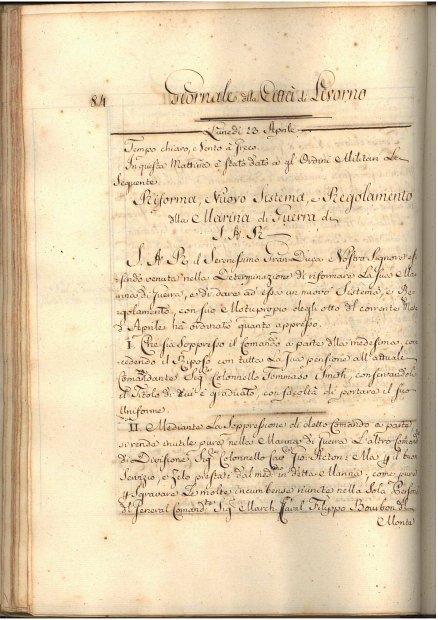 84 Giornale della Città di Livorno
Lunedì 23 Aprile
Tempo chiaro, e Vento à Greco.
In questa Mattina è stato dato a gl'Ordini Militari Le
Seguente
Riforma, Nuovo Sistema, e Regolamento
della Marina di Guerra di
S. A. R.
S. A. R. il Serenissimo Gran-Duca e Nostro Signore es
sendo venuta nella Determinazione di riformare La sua Ma
rina di Guerra, e di dare ad essa un nuovo Sistema, e Re-
golamento, con suo Motuproprio degli otto del corrente Mese
d'Aprile ha ordinato quanto appresso.
I. Che sia soppresso il Comando a parte della medesima, con
cedendo il Riposo con tutta La sua pensione all'attuale
Comandante Sigr. Colonnello Tommaso Smith, conservandoli
il Titolo di cui è graduato, con facoltà di portare il suo
Uniforme.
II. Mediante La Soppressione di detto Comando a parte
si rende inutile pure nella Marina di Guerra L'altro Comand
di Divisione Sigr. Colonnello Cavr. Gio: Acton: Ma p il buon
Servizio, e Zelo prestato dal med. in detta Marina, come pure
p Sgravare Le molte incumbenze riunite nella Sola Persona
del General Comandte Sigr. March. Filippo Bourbon del
Monte